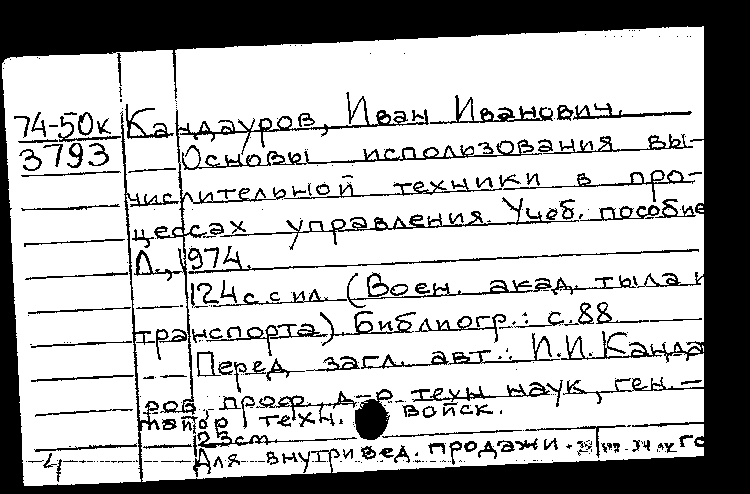 74-50к Кандауров, Иван Иванович.
3793 Основы использования вы-
числительной техники в про-
цессах управления. Учеб. пособие
Л., 1974.
124с с ил. (Воен. акад. тыла и
транспорта). Библиогр.: с. 88.
Перед загл. авт.: И.И. Канда
ров, проф., д-р техн. наук, ген.-
майор техн. войск.
23см
4 Для внутривед. продажи